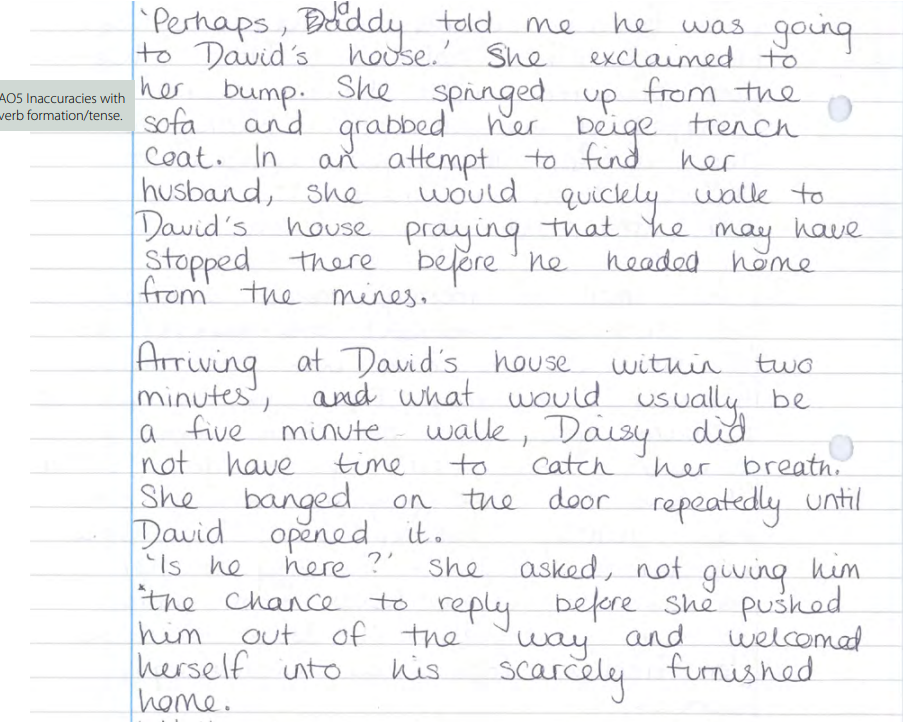 'Perhaps, Daddy told me he was going
to David's house.' She exclaimed to
her bump. She springed up from the
sofa and grabbed her beige trench
coat. In an attempt to find her
husband, she would quickly walk to
David's house praying that he may have
stopped there before he headed home
from the mines.
AO5 Inaccuracies with
verb formation/tense.
Arriving at David's house within two
minutes, and what would usually be
a five minute walk, Daisy did
not have time to catch her breath.
She banged on the door repeatedly until
David opened it.
'Is he here?' she asked, not giving him
*the chance to reply before she pushed
him out of the way and welcomed
herself into his scarcely furnished
home.